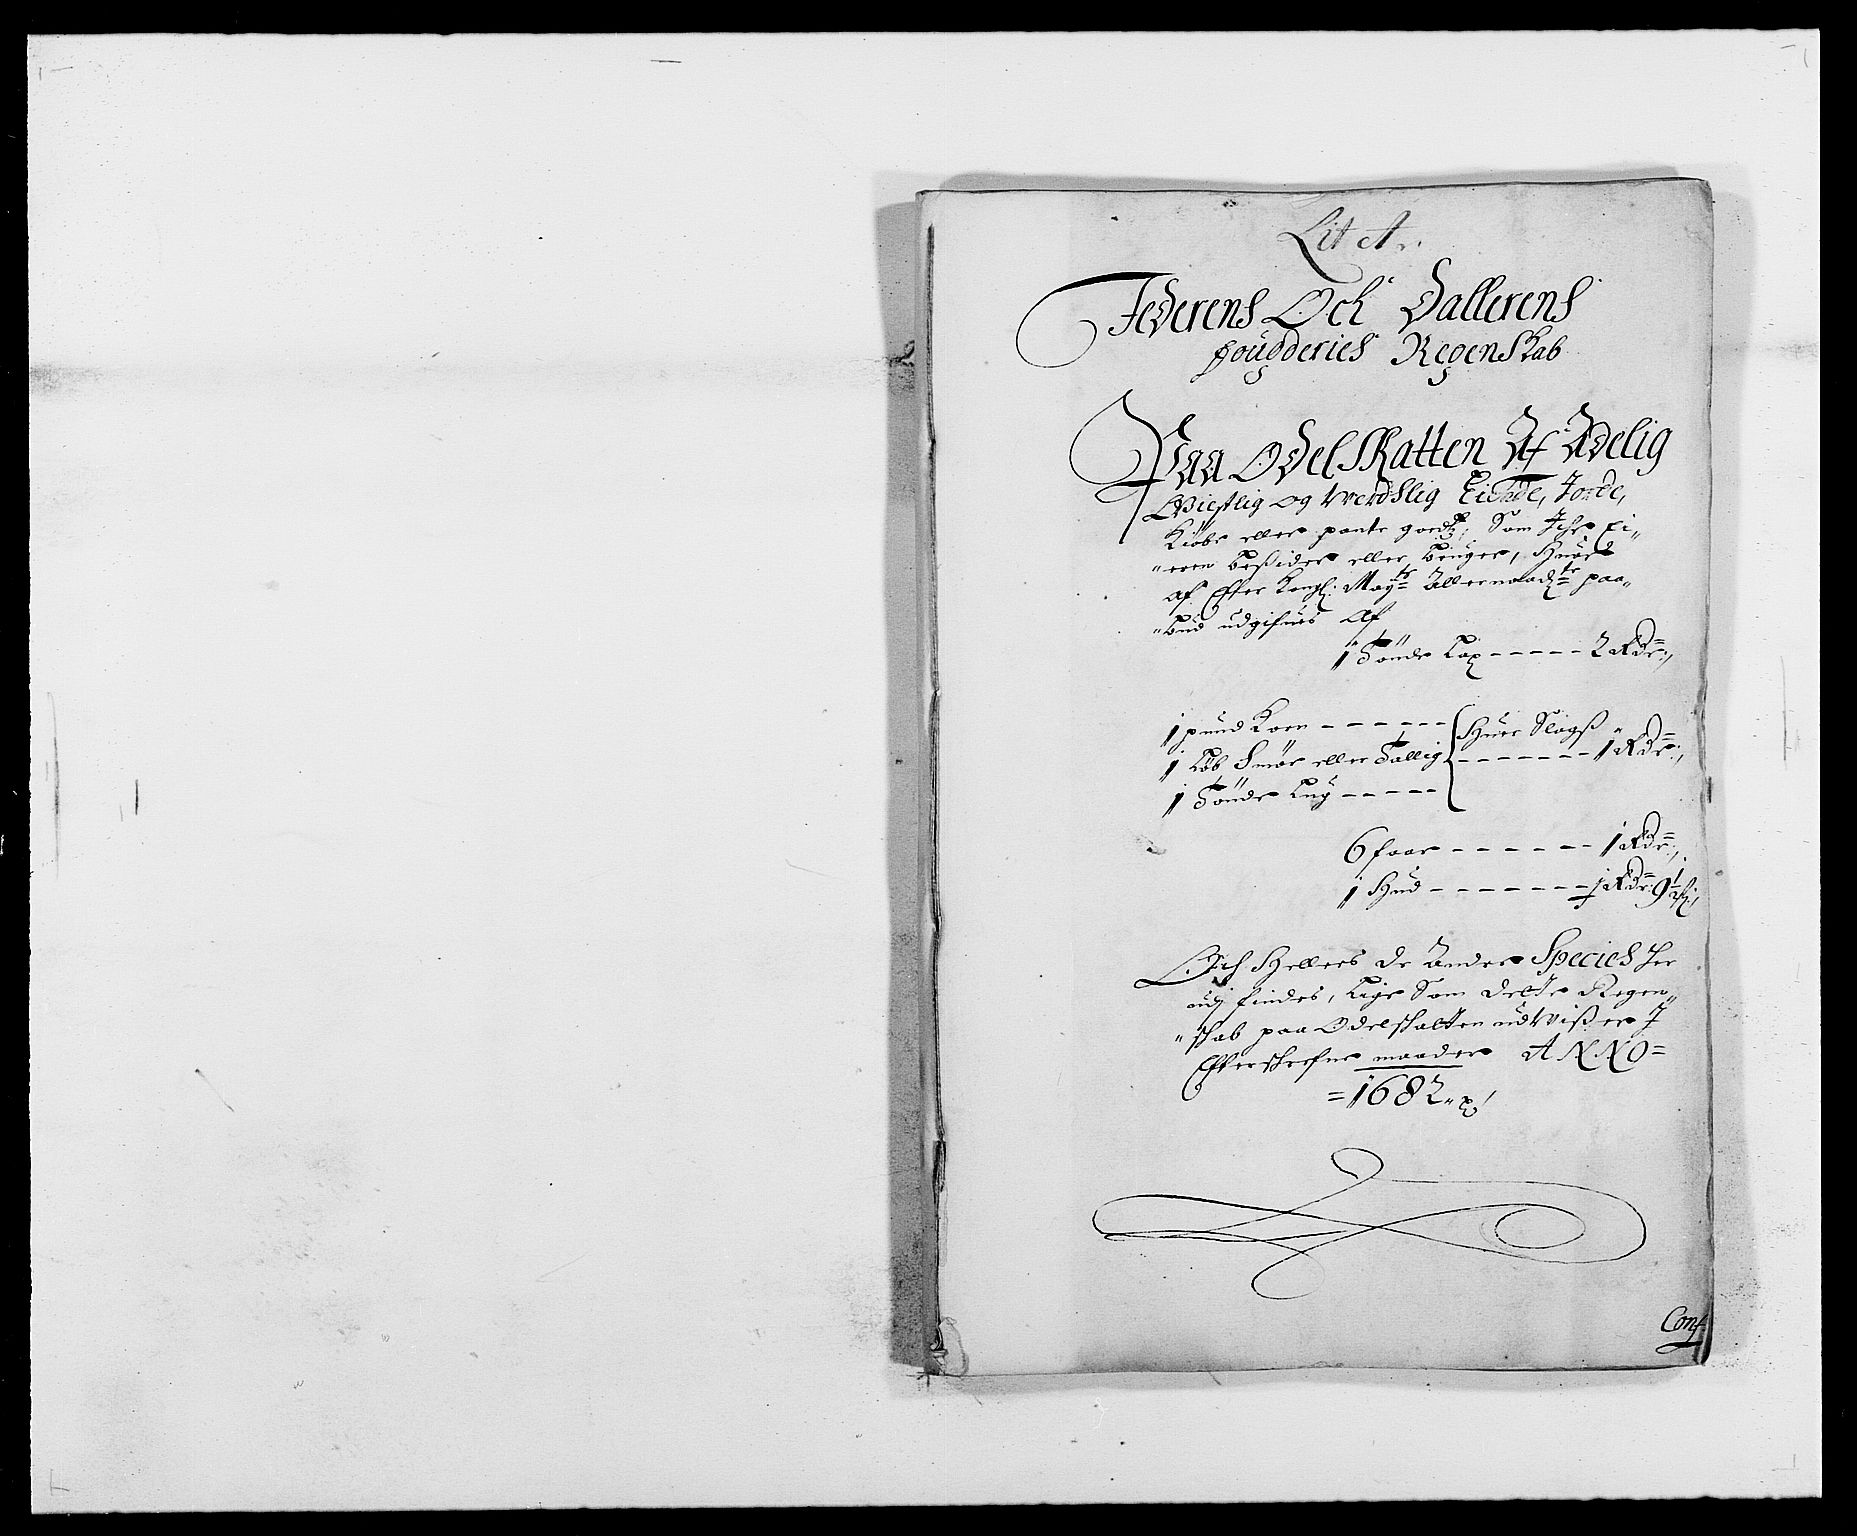 Lit A.
Jederens Och Dallerens
fougderies Regenskab
Paa Odel Skatten Af Adelig
Giestlig og Werdslig Eiende, Jorde,
Kiøbe eller pante goedtz, Som
eren beßider eller bruger, Huor
af Efter Kongl: Mayts Allernaadte paa
bud udgifues Af
1 Tønde Lax - - - - - 2 Rdr:
1 pund Korn - - - - - - Huer Slags
1 Løb Smør eller Tallig - - - - - - - 1 Rdr:
1 Tønde Lug - - - - -
6 faar - - - - - - 1 Rdr:
1 Hud - - - - - - - 1 Rdr:
Och Hellers de Andre Species her
udj findes, Lige Som dette Regen
skab paa Odelskatten udWißer I
Efterschrefne maader ANNO=
=1682
Conf